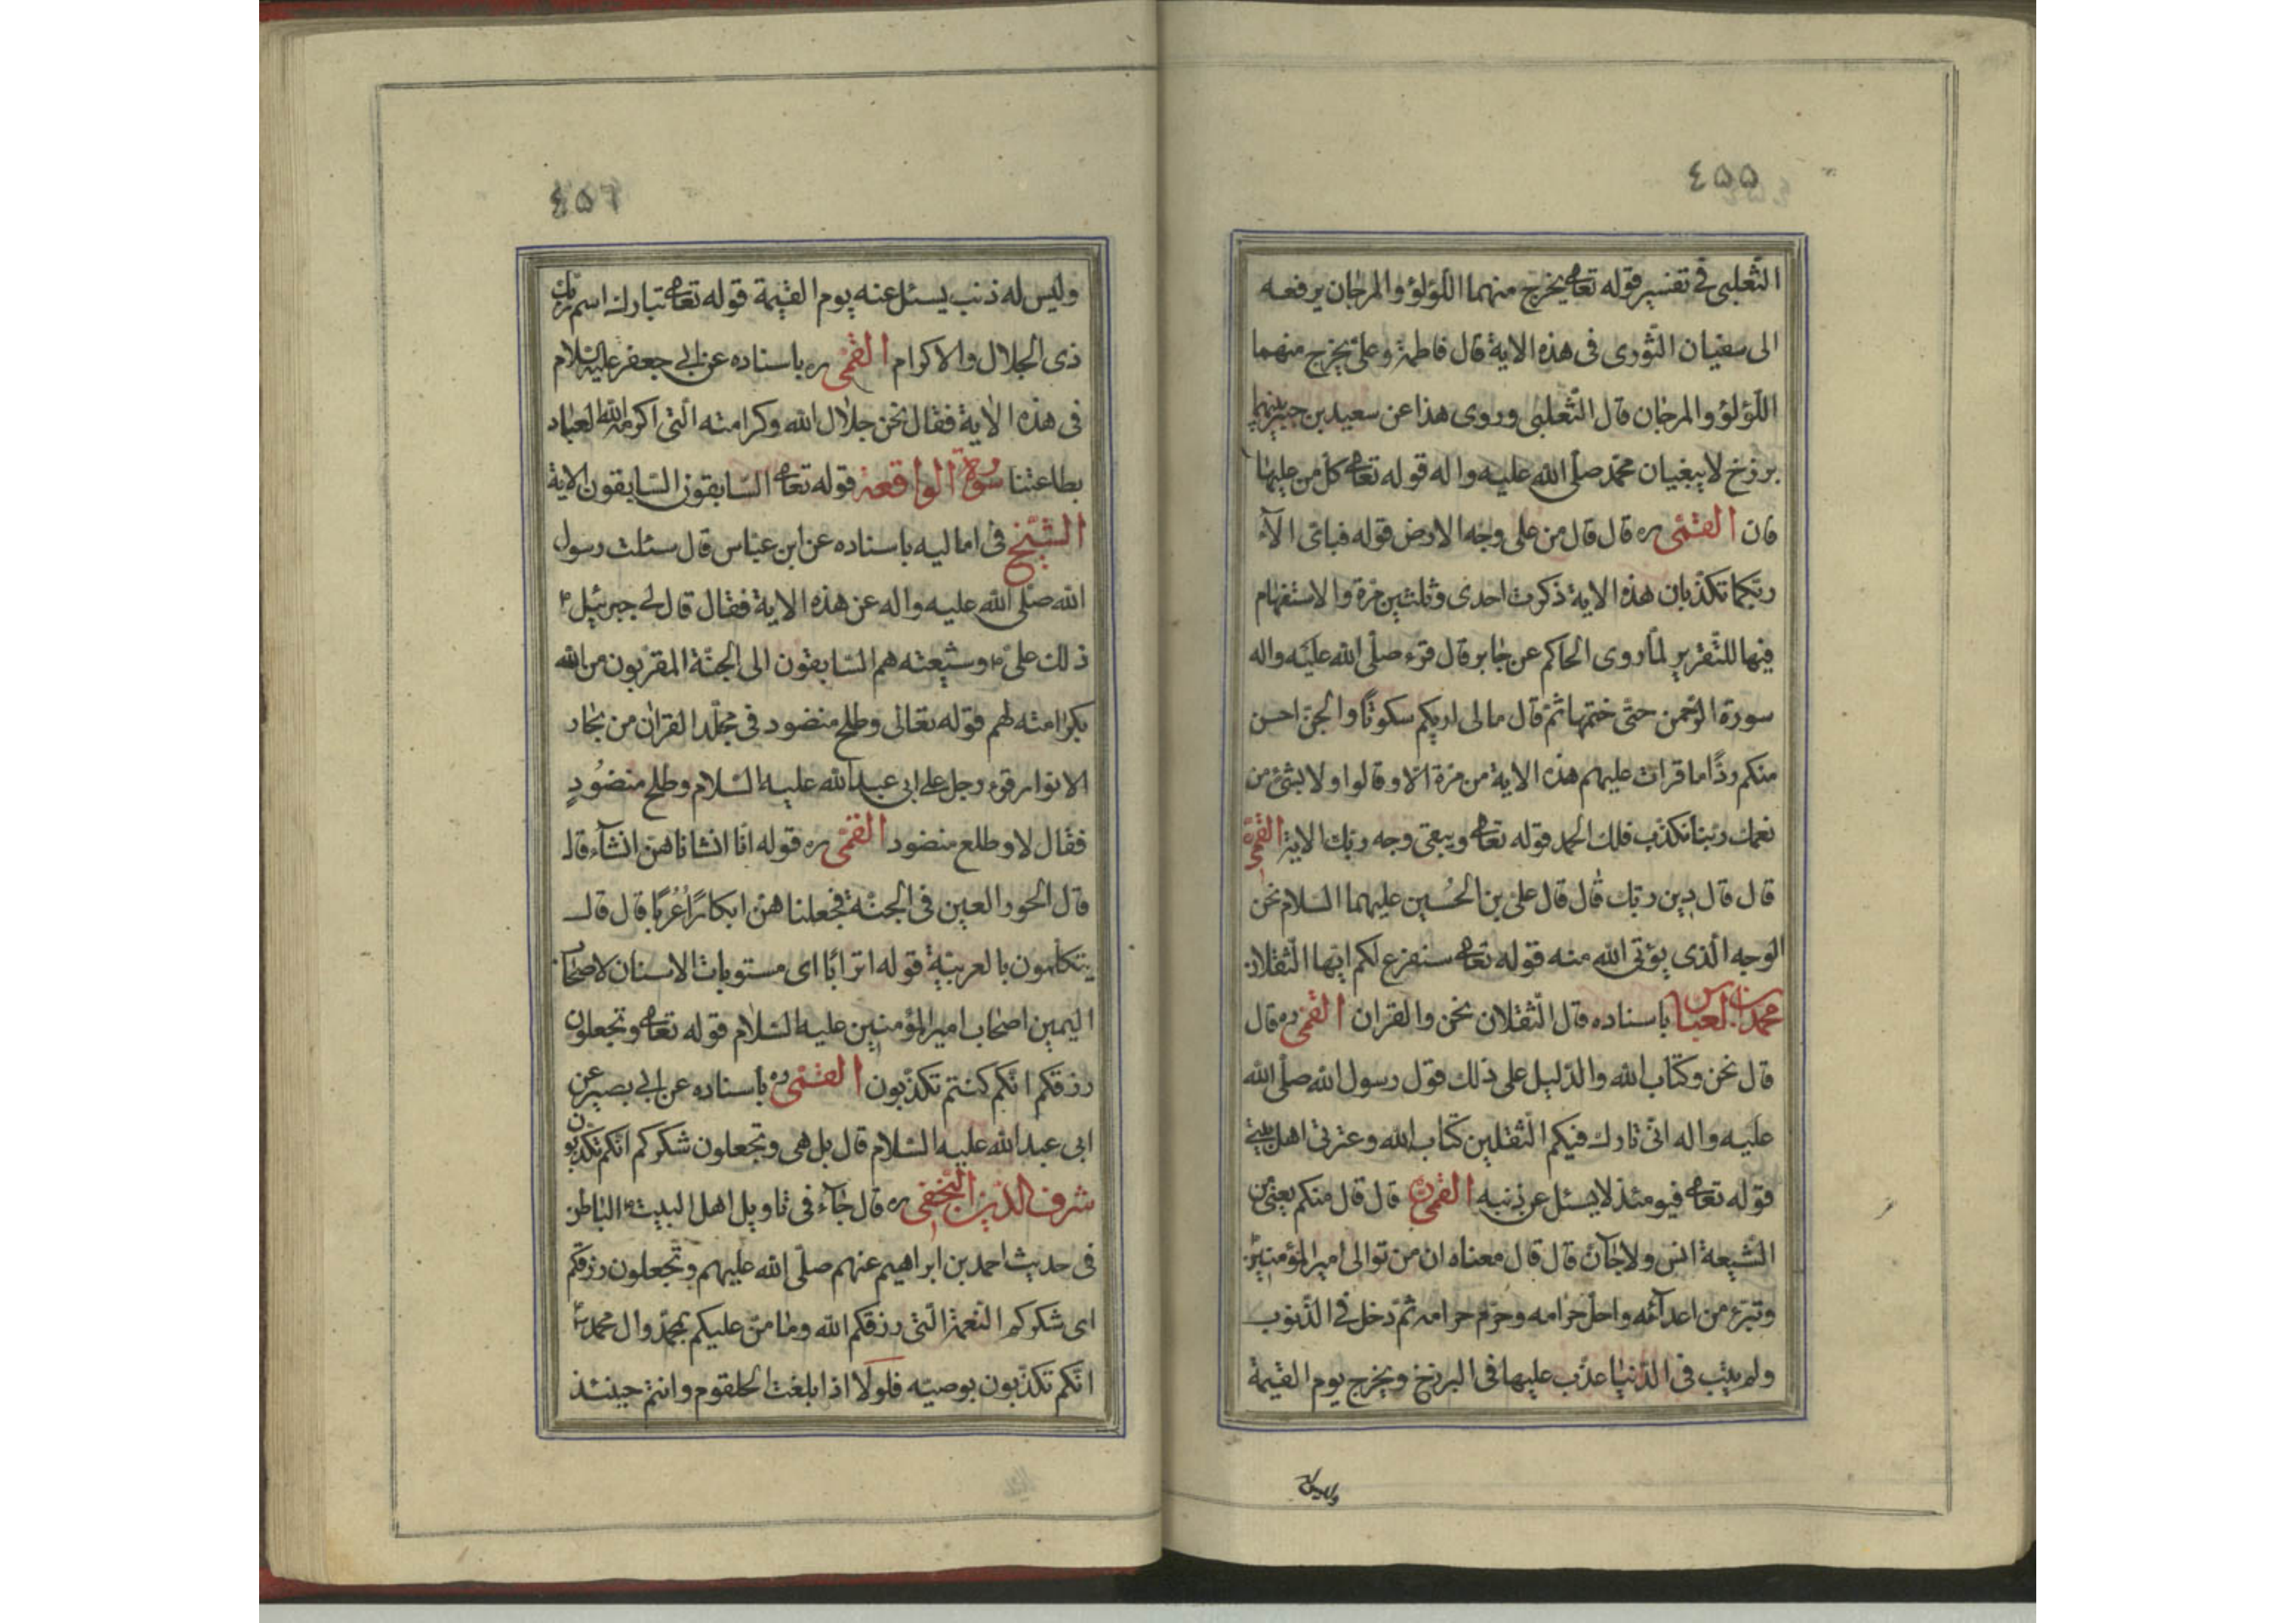 ٤٥٥
الثّعلبى فى تفسير قوله تعالى يخرج منهما اللؤلؤ والمرجان يرفعه
الى سفيان الثّورى فى هذه الاية قال فاطمة وعلى يخرج منهما
اللّؤلؤ والمرجان قال الثّعلبى وروى هذا عن سعيد بن جبير بينهما
برزخ لا يبغيان محمّد صلّى الله عليه واله قوله تعالى كل من عليها
فان القمّى ره قال قال من على وجه الارض قوله فباى الآء
ربّكما تكذّبان هذه الاية ذكرت احدى وثلثين مرّة والاستفهام
فيها للتّقرير لما روى الحاكم عن جابر قال قرء صلّى الله عليه واله
سورة الرّحمن حتّى ختمها ثمّ قال مالى اريكم سكوتًا والجنّ احسن
منكم ردًّا ما قرات عليهم هذه الاية من مرّة الّا وقالوا ولا بشئ من
نعمك ربّنا نكذّب فلك الحمد قوله تعالى ويبقى وجه ربّك الاية القمّى
قال قال دين ربّك قال قال علىّ بن الحُسين عليهما السّلام نحن
الوجه الّذى يؤتى الله منه قوله تعالى سنفرغ لكم ايّها الثّقلان
محمّد بن العبّاس باسناده قال الثّقلان نحن والقران القمّى ره قال
قال نحن وكتاب الله والدّليل على ذلك قول رسول الله صلّى الله
عليه واله انّى تارك فيكم الثّقلين كتاب الله وعترتى اهل بيتى
قوله تعالى فيومئذ لا يسئل عن ذنبه القمّى ره قال قال منكم يعنى من
الشّيعة انس ولا جانّ قال قال معناه ان من توالى امير المؤمنين
وتبرّء من اعدآئه واحلّ حلاله وحرّم حرامه ثمّ دخل فى الذّنوب
ولم يتب فى الدّنيا عذّب عليها فى البرزخ ويخرج يوم القيمة
وليس له
٤٥٦
وليس له ذنب يسئل عنه يوم القيمة قوله تعالى تبارك اسم ربّك
ذى الجلال والاكرام القمّى ره باسناده عن ابى جعفر عليه السّلام
فى هذه الاية فقال نحن جلال الله وكرامته الّتى اكرم الله العباد
بطاعتنا سورة الواقعة قوله تعالى السّابقون السّابقون الاية
الشّيخ فى اماليه باسناده عن ابن عبّاس قال سئلت رسول
الله صلّى الله عليه واله عن هذه الاية فقال قال لى جبرئيل ع
ذلك علىّ ع وشيعته هم السّابقون الى الجنّة المقرّبون من الله
بكرامته لهم قوله تعالى وطلح منضود فى مجلّد القران من بحار
الانوار قرء رجل على ابى عبد الله عليه السّلام وطلح منضُودٍ
فقال لا وطلع منضود القمّى ره قوله انّا انشاناهنّ انشآء قال
قال الحور العين فى الجنّة فجعلناهنّ ابكارًا عُرُبًا قال قال
يتكلّمون بالعربيّة قوله اترابًا اى مستويات الاسنان لاصحاب
اليمين اصحاب امير المؤمنين عليه السّلام قوله تعالى وتجعلون
رزقكم انّكم كنتم تكذّبون القمّى ره باسناده عن ابى بصير عن
ابى عبد الله عليه السّلام قال بل هى وتجعلون شكركم انّكم تكذّبون
شرف الدّين النّجفى ره قال جآء فى تاويل اهل البيت ع الباطن
فى حديث احمد بن ابراهيم عنهم صلّى الله عليهم وتجعلون رزقكم
اى شكركم النّعمة الّتى رزقكم الله وما منّ عليكم بمحمّد وال محمّد
انّكم تكذّبون بوصيّه فلولا اذا بلغت الحلقوم وانتم حينئذ